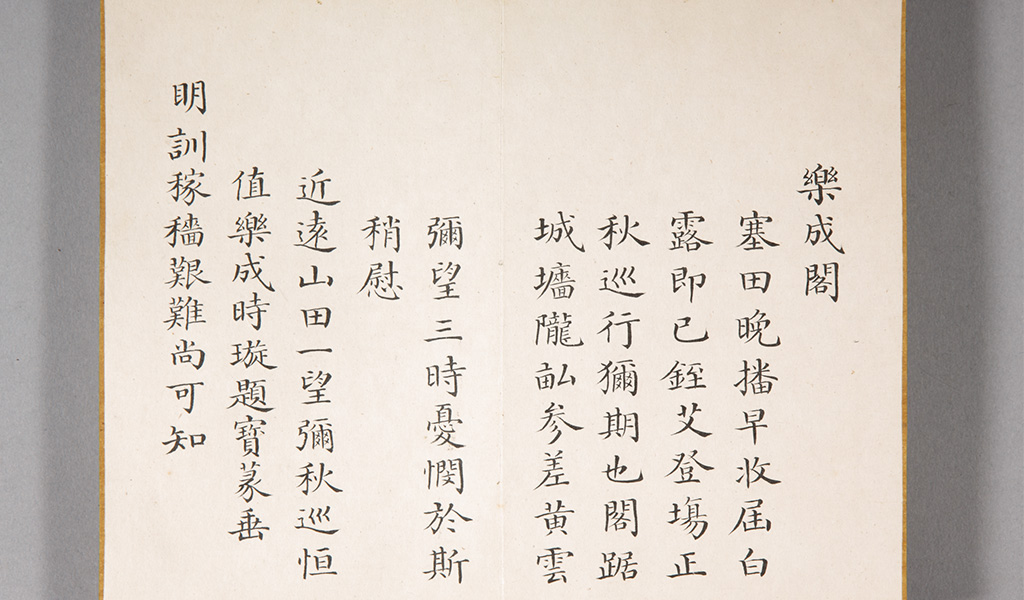 樂成閣
塞田晚播早收屆白
露即已銍艾登塲正
秋巡行獮期也閣踞
城墻隴畆参差黄雲
彌望三時憂憫於斯
稍慰
近遠山田一望彌秋巡恒
值樂成時璇題寶篆垂
明訓稼穡艱難尚可知